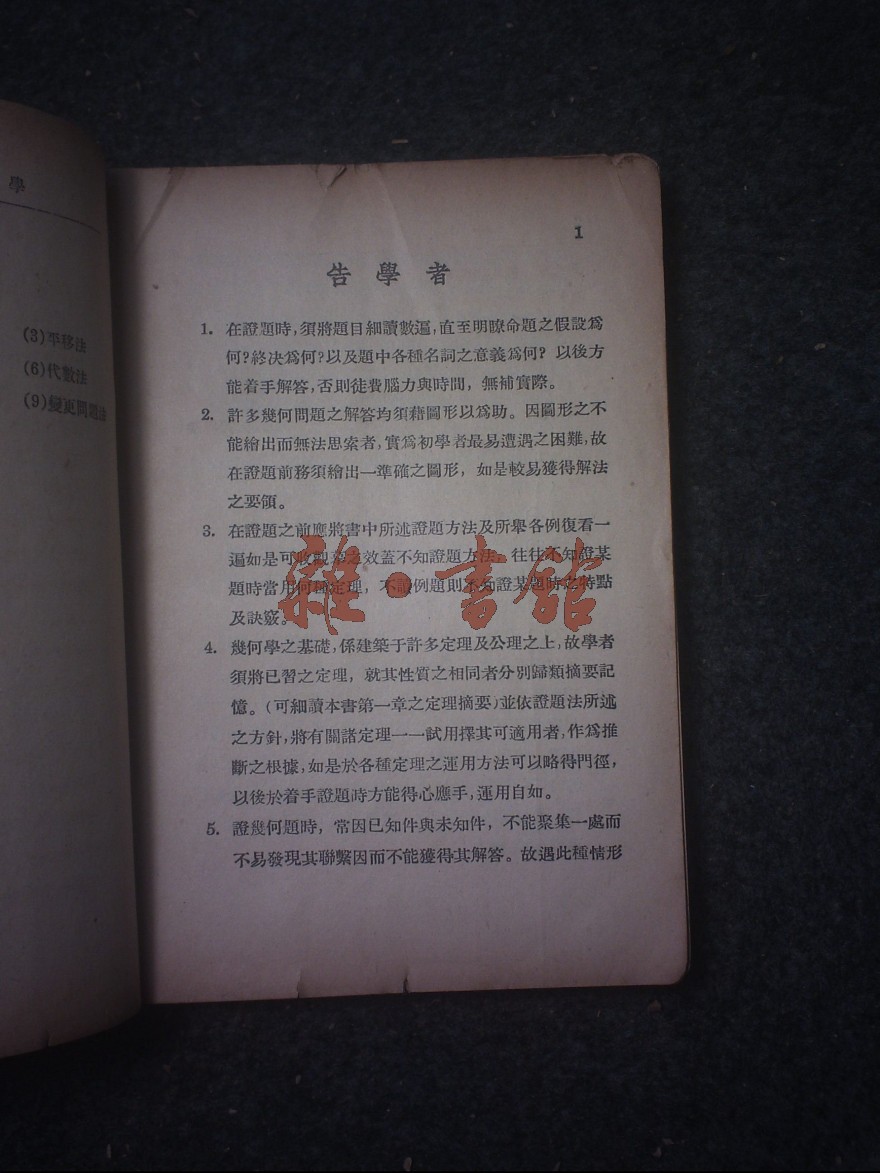 學
(3)平移法
(6)代數法
(9)變更問題法
1
告學者
1. 在證題時,須將題目細讀數遍,直至明瞭命題之假設爲
何?終決爲何?以及題中各種名詞之意義爲何? 以後方
能着手解答,否則徒費腦力與時間,無補實際。
2. 許多幾何問題之解答均須藉圖形以爲助。因圖形之不
能繪出而無法思索者,實爲初學者最易遭遇之困難,故
在證題前務須繪出一準確之圖形,如是較易獲得解法
之要領。
3. 在證題之前應將書中所述證題方法及所舉各例復看一
遍如是可收觀摹之效蓋不知證題方法,往往不知證某
題時當用何種定理,不讀例題則不知證某題時之特點
及訣竅。
4. 幾何學之基礎,係建築于許多定理及公理之上,故學者
須將已習之定理,就其性質之相同者分別歸類摘要記
憶。(可細讀本書第一章之定理摘要)並依證題法所述
之方針,將有關諸定理一一試用擇其可適用者,作爲推
斷之根據,如是於各種定理之運用方法可以略得門徑,
以後於着手證題時方能得心應手,運用自如。
5. 證幾何題時,常因已知件與未知件,不能聚集一處而
不易發現其聯繫因而不能獲得其解答。故遇此種情形
雜·書館